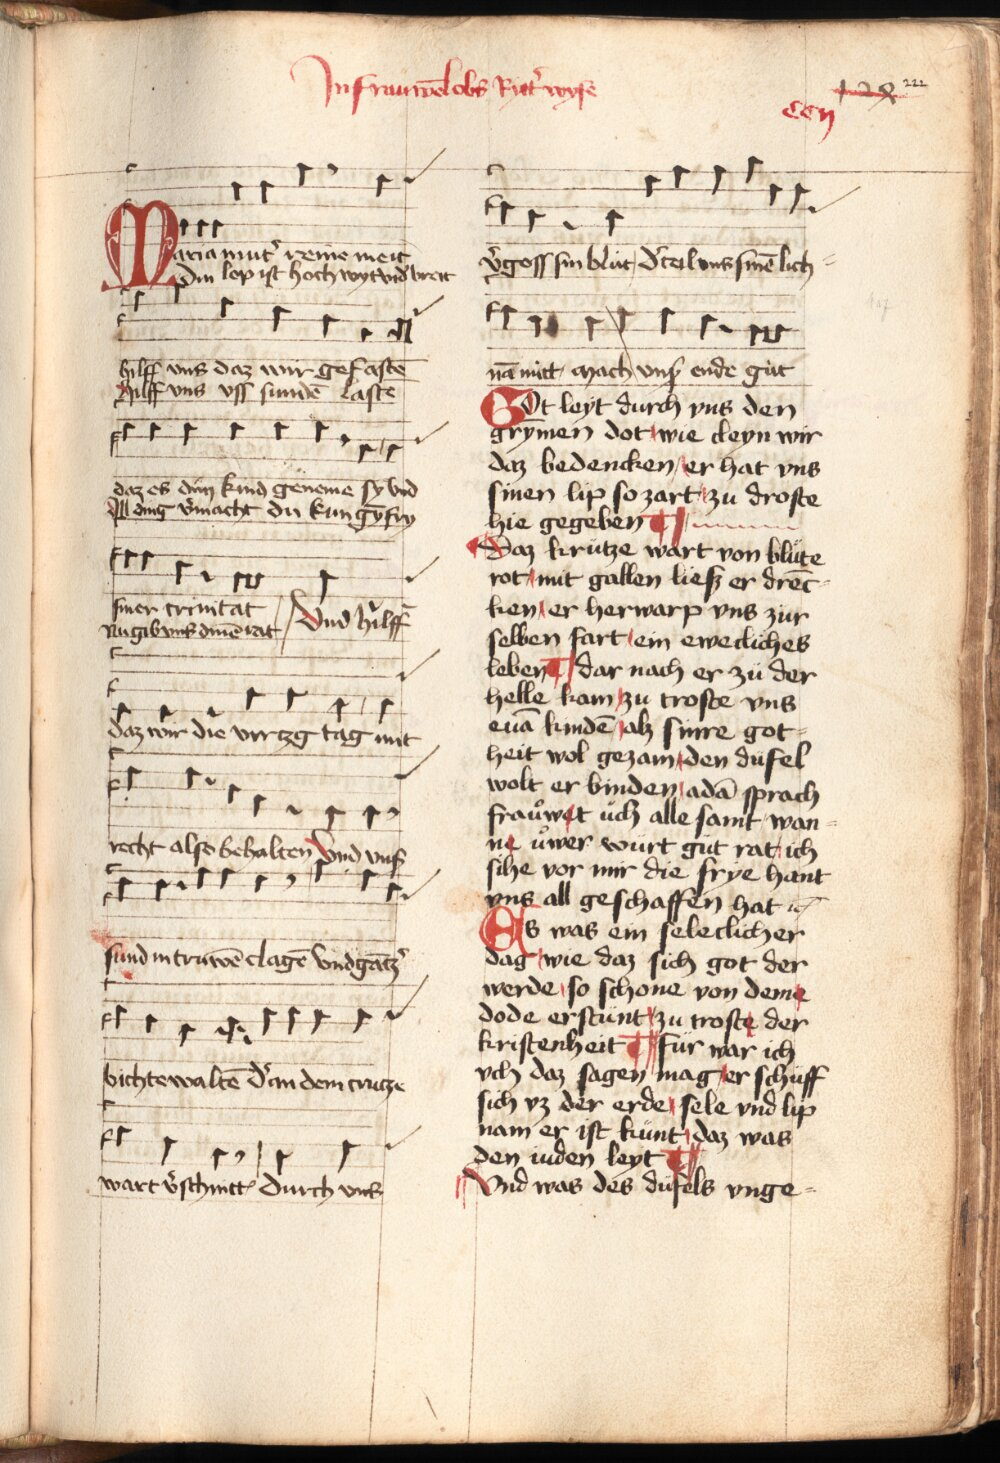 In frauwēlobs Ritt̓ wyse
128 222
ccij
Maria mut̓ reine meit
Din lop ist hoch wyt vnd breit
hilff vns daz wir gefastē
Hilff vns vss sundē lastē
daz es dim kind geneme sy vnd
All ding v̓macht du kungȳ fry
siner trinitat
Nu gib vns dinē rat / Vnd hilff
daz wir die virtzg tag mit
recht also behalten Vnd vns̓
sund in truwē clagē Vnd gātz̓
bichte waltē D̓ an dem crutze
wart v̓schnitt̓ Durch vns
v̓goss sin blut / D̓ teil vns sinē lich=
nā mitt̓ mach vns̓ ende gut
Got leyt durch vns den
grymen dot wie cleyn wir
daz bedencken er hat vns
sinen lip so zart zu droste
hie gegeben
Daz krütze wart von blüte
rot mit gallen liesz er drenc=
ken er herwarp vns zür
selben fart ein ewecliches
leben dar nach er zü der
helle kam zu troste vns
euā kindē alz sinre got=
heit wol gezam den düfel
wolt er binden adā sprach
frauwet üch alle samt wan=
ne üwer würt güt rat ich
sihe vor mir die frye hant
vns all geschaffen hat
Es was ein seleclicher
dag wie daz sich got der
werde so schone von deme
dode erstünt zu troste der
kristenheit für war ich
vch daz sagen mag er schüff
sich vz der erde sele vnd lip
nam er ist künt daz was
den iuden leyt
Vnd was des düfels vnge=